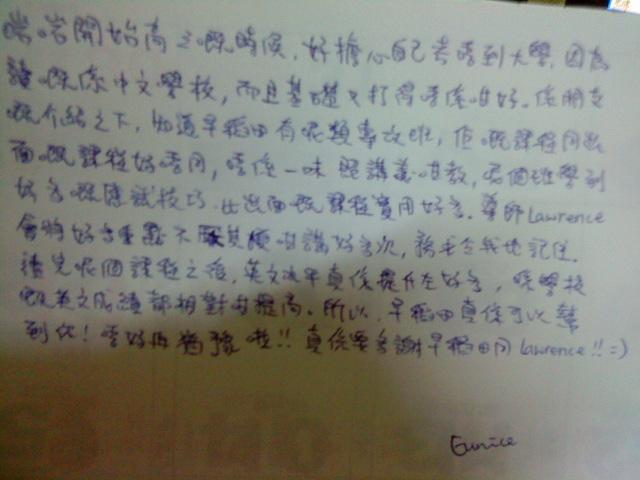 啱啱開始高之嘅時候，好擔心自己考唔到大學，因為
讀嘅係中文學校，而且基礎又打得唔係咁好。係朋友
嘅介紹之下，知道早稻田有呢類專攻班，佢嘅課程同出
面嘅課程好唔同，唔係一味照講義咁教，喺個班學到
好多嘅應試技巧，比出面嘅課程實用好多。導師Lawrence
會將好多重點不厭其煩咁講好多次，務求令我地記住。
讀完呢個課程之後，英文水平真係提升左好多，喺學校
嘅英文成績都相對咁提高。所以，早稻田真係可以幫
到你！唔好再猶豫啦!! 真係要多謝早稻田同Lawrence!! =)
Eunice